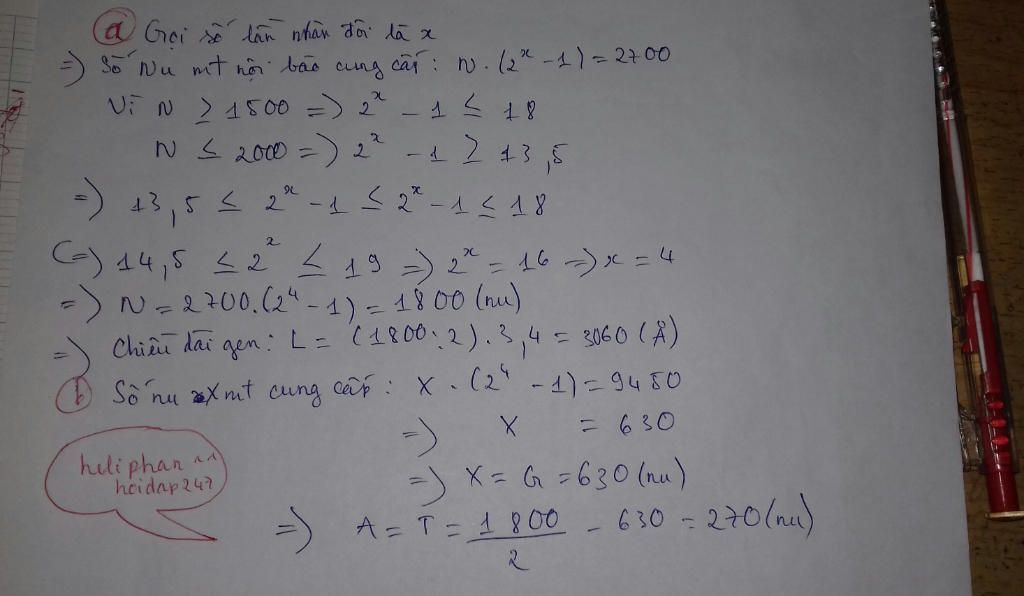 a Gọi số lần nhân đôi là x
=) Số Nu mt nội bào cung cấp: N.(2ˣ - 1) = 2700
Vì N ≥ 1500 =) 2ˣ - 1 ≤ 18
N ≤ 2000 =) 2ˣ - 1 ≥ 13,5
=) 13,5 ≤ 2ˣ - 1 ≤ 2ˣ - 1 ≤ 18
(=) 14,5 ≤ 2ˣ ≤ 19 =) 2ˣ = 16 =) x = 4
=) N = 2700.(2⁴ - 1) = 1800 (nu)
=) Chiều dài gen: L = (1800:2).3,4 = 3060 (Å)
b Số nu X mt cung cấp: X.(2⁴ - 1) = 9450
=) X = 630
=) X = G = 630 (nu)
=) A = T = 1800/2 - 630 = 270 (nu)
heliphan ^^
hoidap247